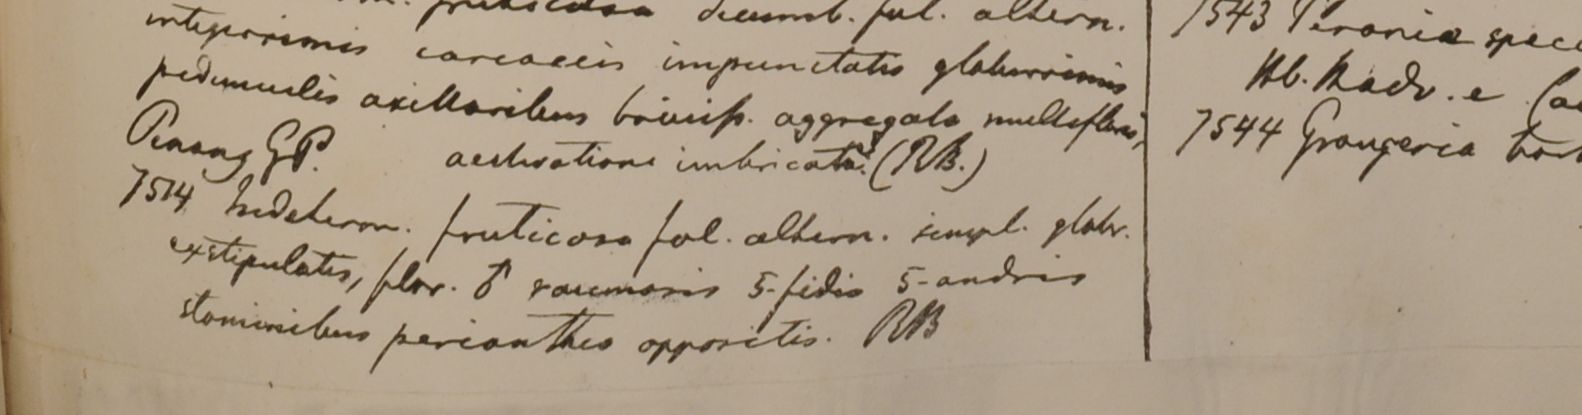 fruticosa decumb. fol. altern.
integerrimis coriaceis impunctatis glaberrimis
pedunculis axillaribus breviss. aggregatis multifloris,
Penang GP. aestivatione imbricata. (RB.)
7514 Indeterm. fruticosa fol. altern. simpl. glabr.
exstipulatis, flor. ♂ racemosis 5-fidis 5-andris
staminibus perianthio oppositis. RB
7543
Hb. Madr. e
7544 Grangeria